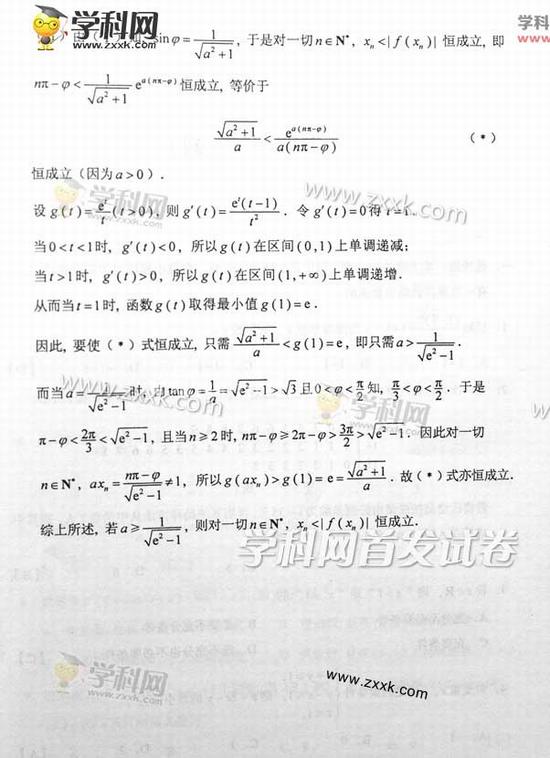 学科网
www.zxxk.com
学科
www.
sinφ = 1/√(a²+1), 于是对一切 n∈N*, xₙ<|f(xₙ)| 恒成立, 即
nπ-φ < 1/√(a²+1) e^{a(nπ-φ)} 恒成立, 等价于
√(a²+1)/a < e^{a(nπ-φ)}/(a(nπ-φ)) (*)
恒成立 (因为 a>0).
www.zxxk.com
设 g(t) = eᵗ/t (t>0), 则 g′(t) = eᵗ(t-1)/t². 令 g′(t)=0 得 t=1.
当 0<t<1 时, g′(t)<0, 所以 g(t) 在区间 (0,1) 上单调递减;
当 t>1 时, g′(t)>0, 所以 g(t) 在区间 (1,+∞) 上单调递增.
从而当 t=1 时, 函数 g(t) 取得最小值 g(1)=e.
因此, 要使 (*) 式恒成立, 只需 √(a²+1)/a < g(1)=e, 即只需 a > 1/√(e²-1).
而当 a = 1/√(e²-1) 时, 由 tanφ = 1/a = √(e²-1) > √3 且 0<φ<π/2 知, π/3<φ<π/2. 于是
www.zxxk.com
学科网
π-φ < 2π/3 < √(e²-1), 且当 n≥2 时, nπ-φ ≥ 2π-φ > 3π/2 > √(e²-1). 因此对一切
n∈N*, axₙ = (nπ-φ)/√(e²-1) ≠ 1, 所以 g(axₙ) > g(1) = e = √(a²+1)/a. 故 (*) 式亦恒成立.
综上所述, 若 a ≥ 1/√(e²-1), 则对一切 n∈N*, xₙ<|f(xₙ)| 恒成立.
学科网首发试卷
学科网
www.zxxk.com
www.zxxk.com